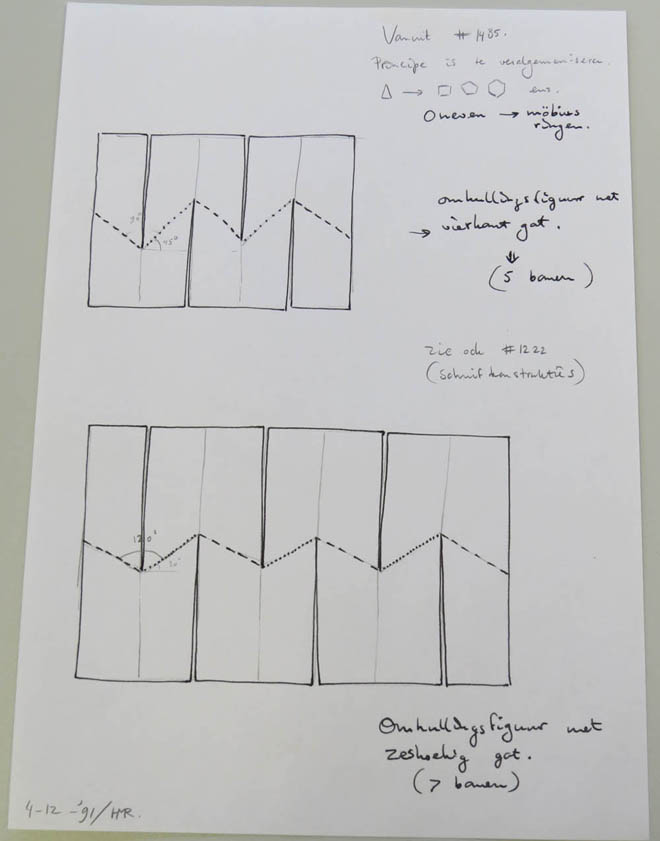 Vanuit #1485.
Principe is te veralgemeniseren.
→ enz.
Oneven → möbius
ringen.
90°
45°
omhullingsfiguur met
→ vierkant gat.
(5 banen)
zie ook #1222
(schuifkonstrukties)
120°
30°
Omhullingsfiguur met
zeshoekig gat.
(7 banen)
4-12-'91/HR.